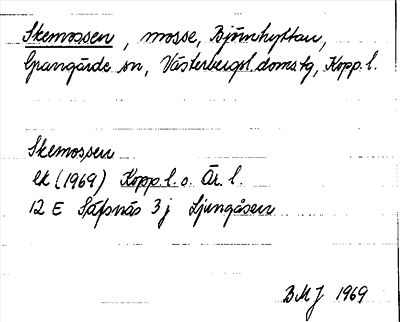 Skemossen, mosse, Björnhyttan,
Grangärde sn, Västerbergsl. doms.tg, Kopp. l.
Skemossen
ek (1969) Kopp. l. o. Ör. l.
12 E Säfsnäs 3 j Ljungåsen
BMJ 1969